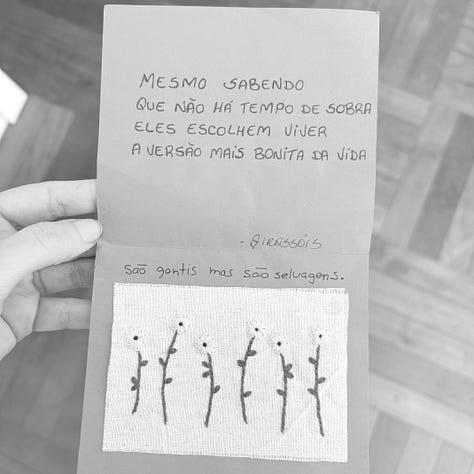 MESMO SABENDO
QUE NÃO HÁ TEMPO DE SOBRA
ELES ESCOLHEM VIVER
A VERSÃO MAIS BONITA DA VIDA
- GIRASSÓIS
são gentis mas são selvagens.